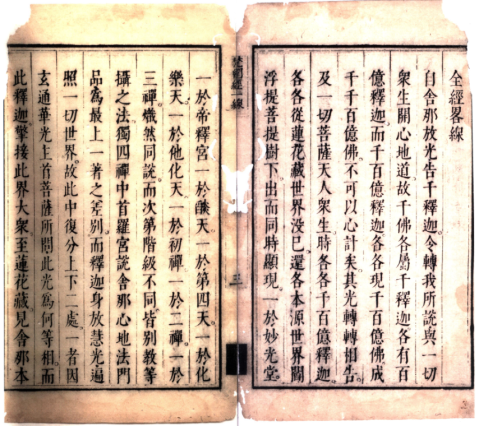 全經畧線
自舍那放光告千釋迦。令轉我所說與一切
衆生開心地道。故千佛各屬千釋迦各有百
億釋迦。而千百億釋迦各各現千百億佛成
千千百億佛。不可以心計矣。其光轉轉相告。
及一切菩薩天人衆生時。各各千百億釋迦。
各各從蓮花藏世界沒已。還各本源世界閻
浮提菩提樹下出。而同時顯現。一於妙光堂。
梵網經一線
三
一於帝釋宮。一於𦦨天。一於第四天。一於化
樂天。一於他化天。一於初禪。一於二禪。一於
三禪。熾然同說。而次第階級不同。皆別教等
攝之法。獨四禪中首羅宮說舍那心地法門
品爲最上一著之差別。而釋迦身放慧光遍
照一切世界。故此中復分上下二處。一者因
玄通華光主菩薩所問此光爲何等相。而
此釋迦擎接此界大衆。至蓮花藏見舍那本